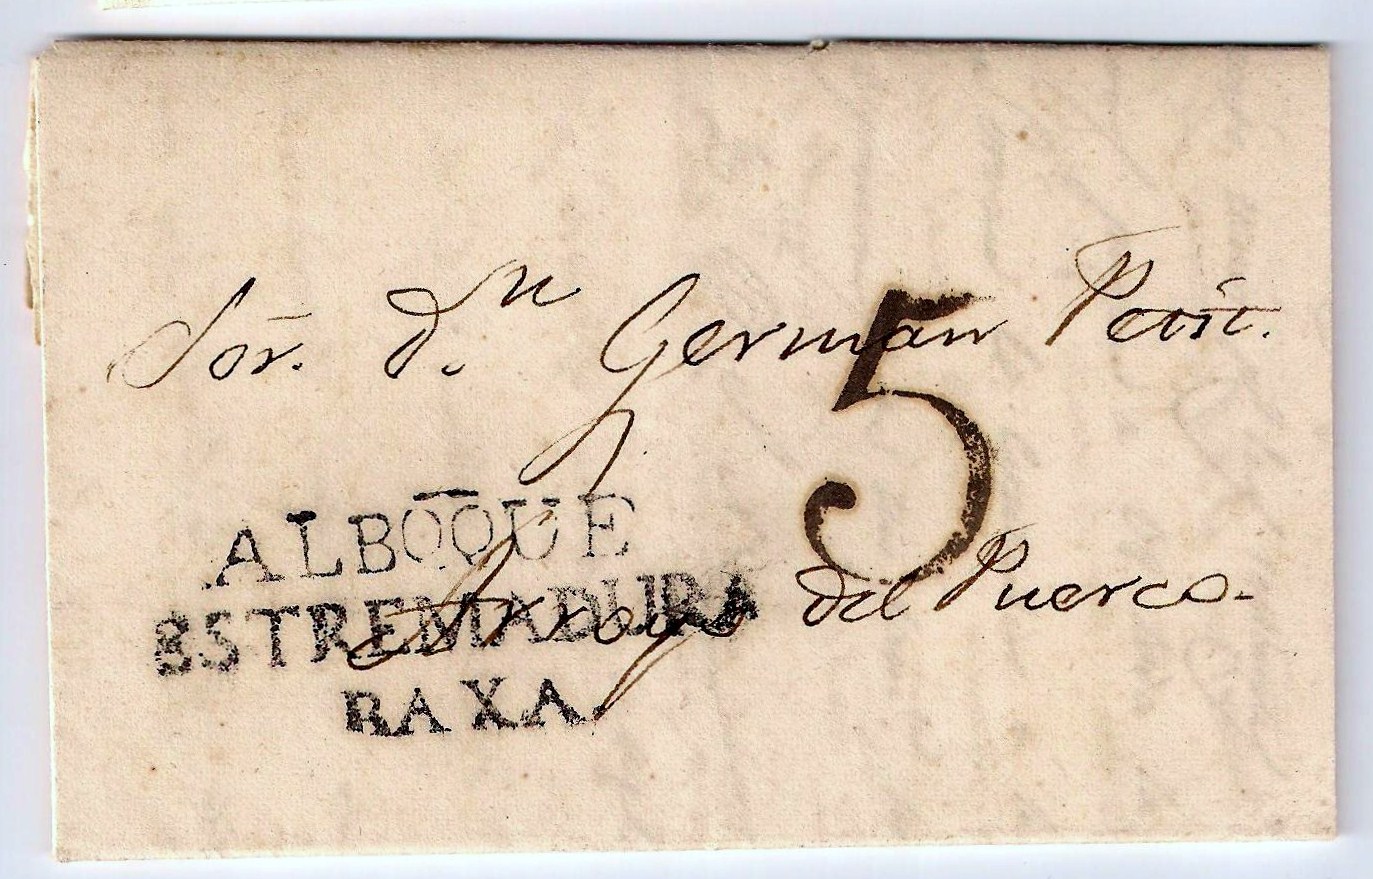 Sor. Dn. German Petit.
5
ALBOQUE
ESTREMADURA
BAXA
Arroyo del Puerco.